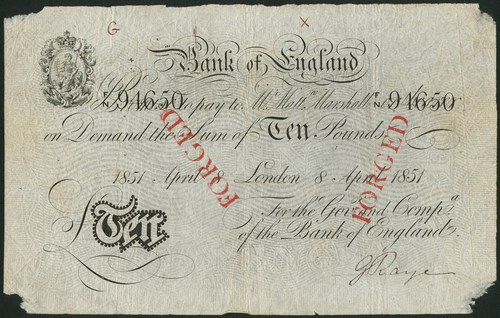 G X
Bank of England
No 94650 I Promise to pay to Mr. Mattw. Marshall No 94650
on Demand the Sum of Ten Pounds
FORGED FORGED
1851 April 8 London 8 April 1851
For the Govr. and Compa.
£ Ten of the Bank of England.